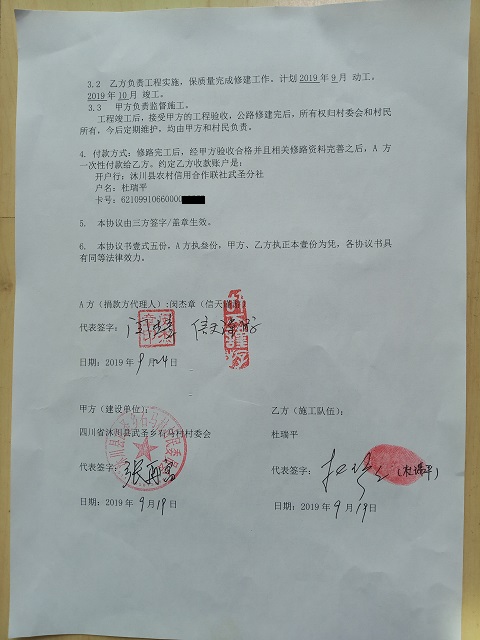 3.2 乙方负责工程实施，保质量完成修建工作。计划 2019年9月 动工。
2019年10月 竣工。
3.3 甲方负责监督施工。
工程竣工后，接受甲方的工程验收，公路修建完后，所有权归村委会和村民
所有，今后定期维护，均由甲方和村民负责。
4. 付款方式：修路完工后，经甲方验收合格并且相关修路资料完善之后，A 方
一次性付款给乙方。约定乙方收款账户是：
开户行：沐川县农村信用合作联社武圣分社
户名：杜瑞平
卡号：62109910660000
5. 本协议由三方签字/盖章生效。
6. 本协议书壹式五份，A 方执叁份，甲方、乙方执正本壹份为凭，各协议书具
有同等法律效力。
A 方（捐款方代理人）:闵杰章（信天
代表签字： 信天
日期：2019 年 9 月 24 日
甲方（建设单位）：
四川省沐川县武圣乡石马村村委会
代表签字：
日期：2019 年 9 月 19 日
乙方（施工队伍）：
杜瑞平
代表签字： （杜瑞平）
日期：2019 年 9 月 19 日